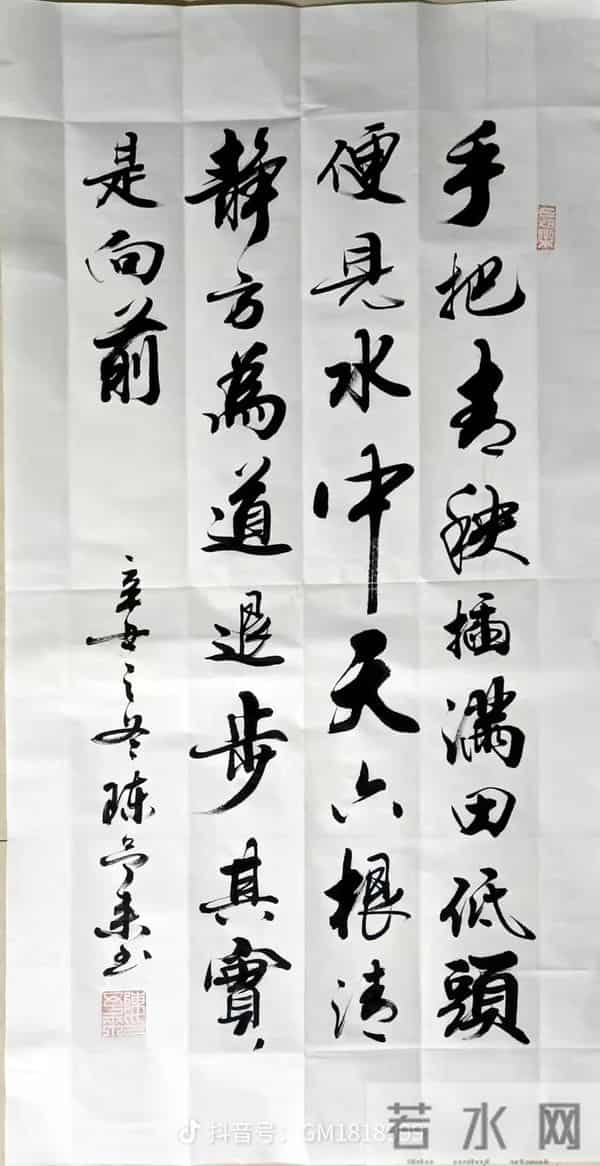 手把青秧插滿田低頭
便見水中天六根清
靜方為道退步其實
是向前
辛丑之冬陳
書
抖音号：GM1818
若水网